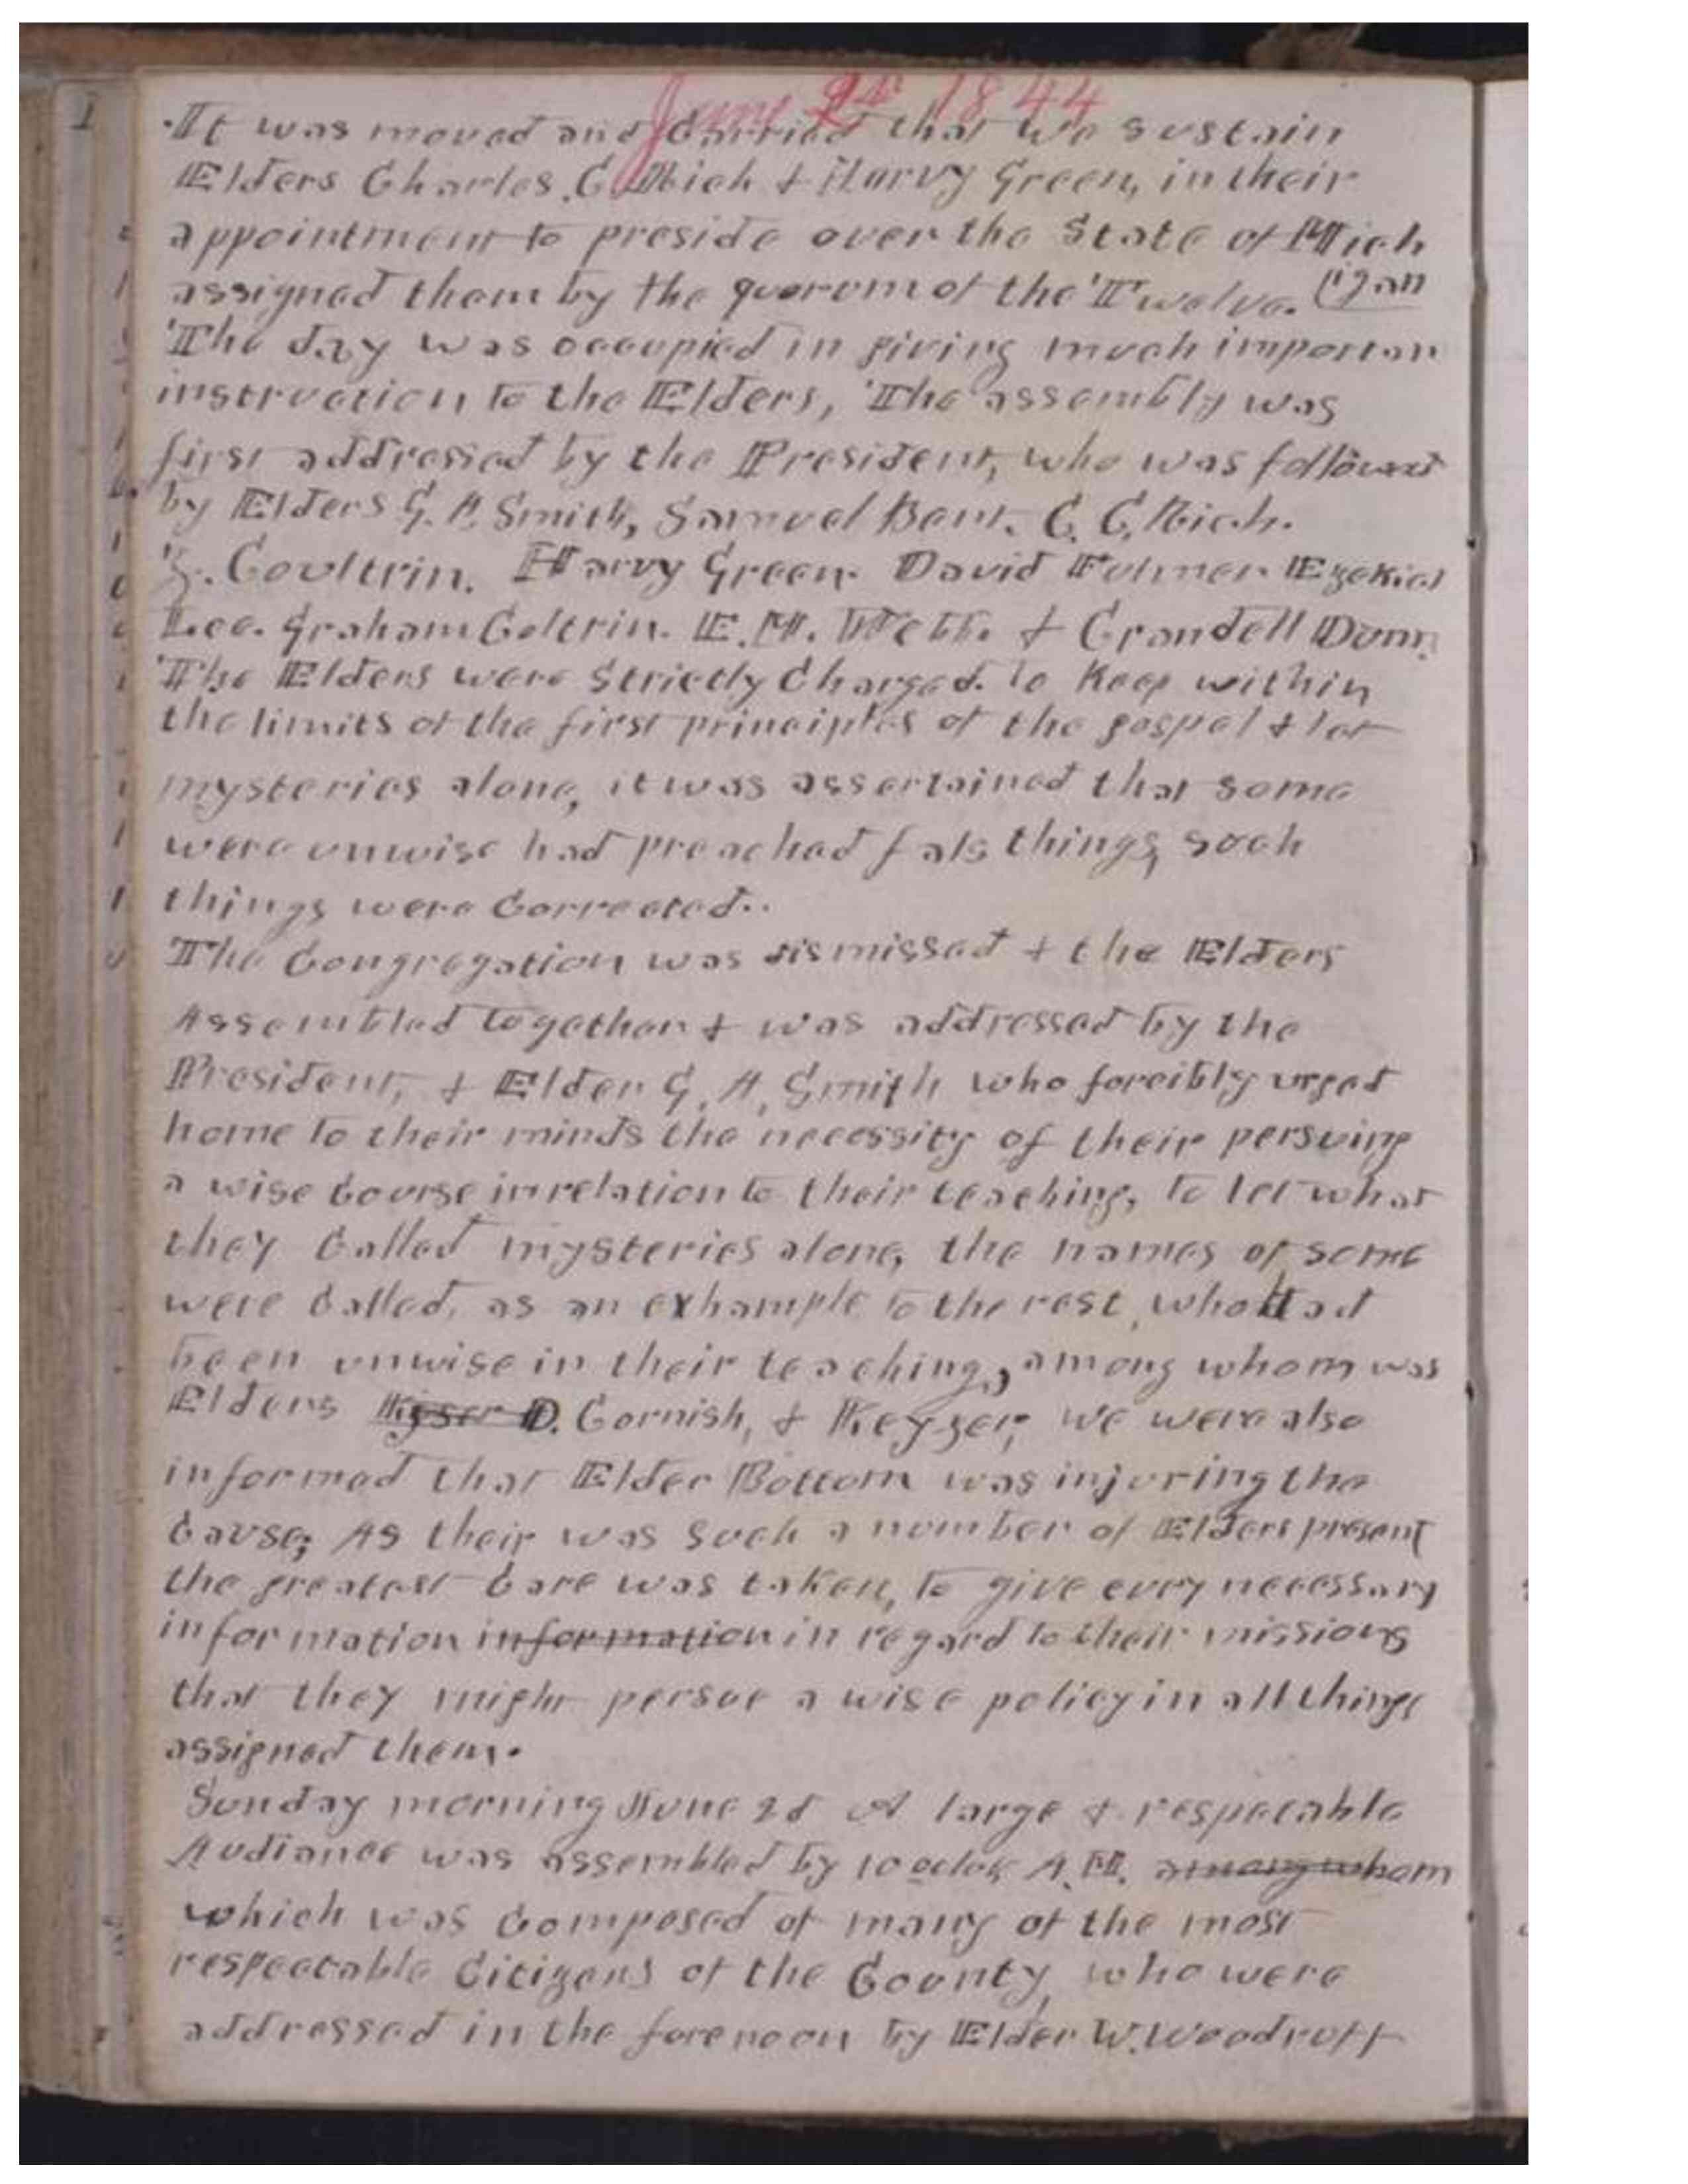 June 2d 1844
It was moved and Carried that we sustain
Elders Charles. C Rich + Harvy Green, in their
appointment to preside over the State of Mich
assigned them by the quorum of the Twelve. (igan
The day was occupied in giving much importan
instruction to the Elders, The assembly was
first addressed by the President, who was followed
by Elders G. A Smith, Samuel Bent. C. C. Rich.
Z. Coultrin. Harvy Green. David Fulmer. Ezekiel
Lee. Graham Coltrin. E. M. Webb. + Crandell Dunn.
The Elders were Strictly Charged. to Keep within
the limits of the first principles of the gospel + let
mysteries alone, it was assertained that some
were unwise had preached fals things, such
things were Corrected..
The Congregation was dismissed + the Elders
Assembled together + was addressed by the
President, + Elder G. A. Smith who forcibly urged
home to their minds the necessity of their persuing
a wise Course in relation to their teaching, to let what
they Called mysteries alone, the names of some
were Called, as an exhample to the rest, who Had
been unwise in their teaching, among whom was
Elders Kyser D. Cornish, + Keyzer, we were also
informed that Elder Bottom was injuring the
Cause; As their was such a number of Elders present
the greatest Care was taken, to give evry necessary
information information in regard to their missions
that they might persue a wise policy in all things
assigned them.
Sunday morning June 2d A large + respectable
Audiance was assembled by 10 oclok A. M. among whom
which was Composed of many of the most
respectable Citizens of the County, who were
addressed in the forenoon by Elder W. Woodruff